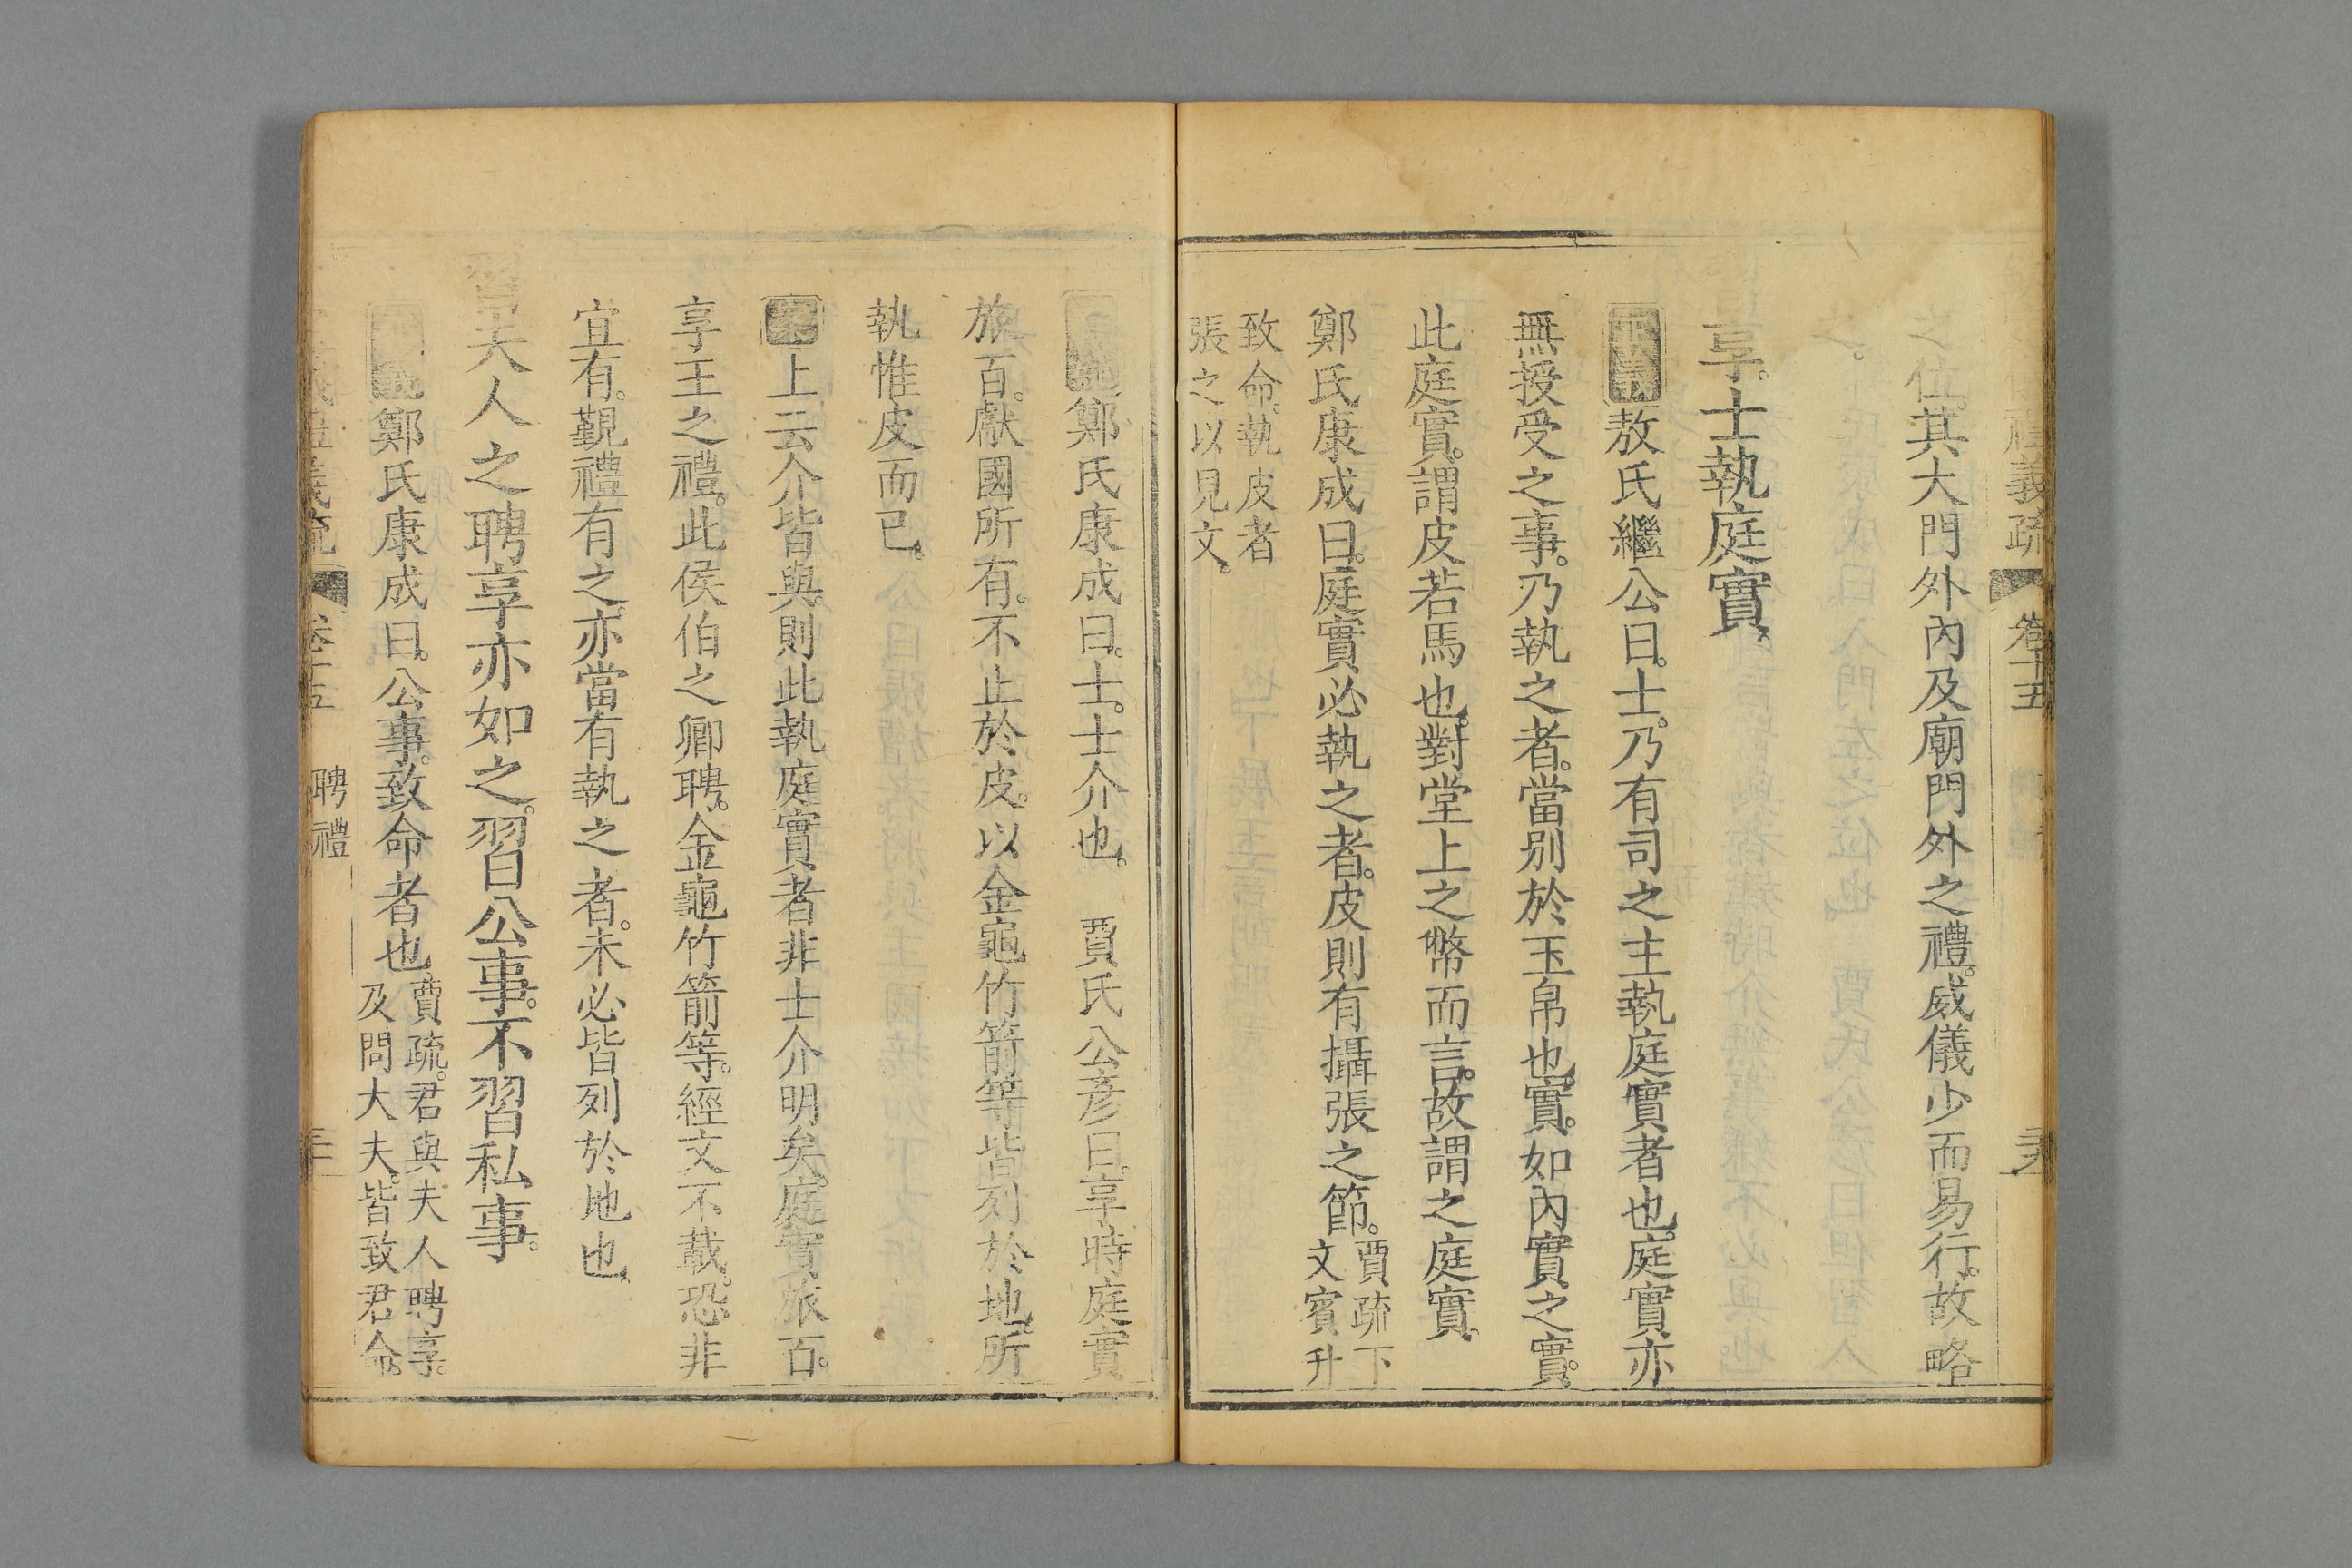 禮義疏 卷十五
之位其大門外內及廟門外之禮威儀少而易行故略
之
享士執庭實
正義敖氏繼公曰士乃有司之主執庭實者也庭實亦
無授受之事乃執之者當別於玉帛也實如內實之實
此庭實謂皮若馬也對堂上之幣而言故謂之庭實
鄭氏康成曰庭實必執之者皮則有攝張之節賈疏下
文賓升
致命執皮者
張之以見文
鄭氏康成曰士士介也 賈氏公彥曰享時庭實
旅百獻國所有不止於皮以金龜竹箭等皆列於地所
執惟皮而已
案上云介皆與則此執庭實者非士介明矣庭實旅百
享王之禮此侯伯之卿聘金龜竹箭等經文不載恐非
宜有覲禮有之亦當有執之者未必皆列於地也
習夫人之聘享亦如之習公事不習私事
義鄭氏康成曰公事致命者也賈疏君與夫人聘享
及問大夫皆致君命
義疏 卷十五 聘禮